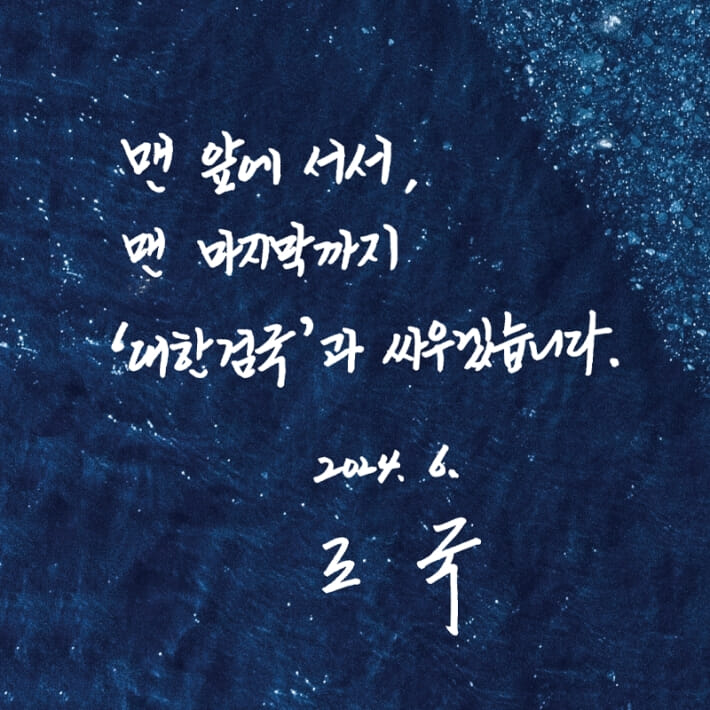 맨 앞에 서서,
맨 마지막까지
‘대한검국’과 싸우겠습니다.
2024. 6.
조 국